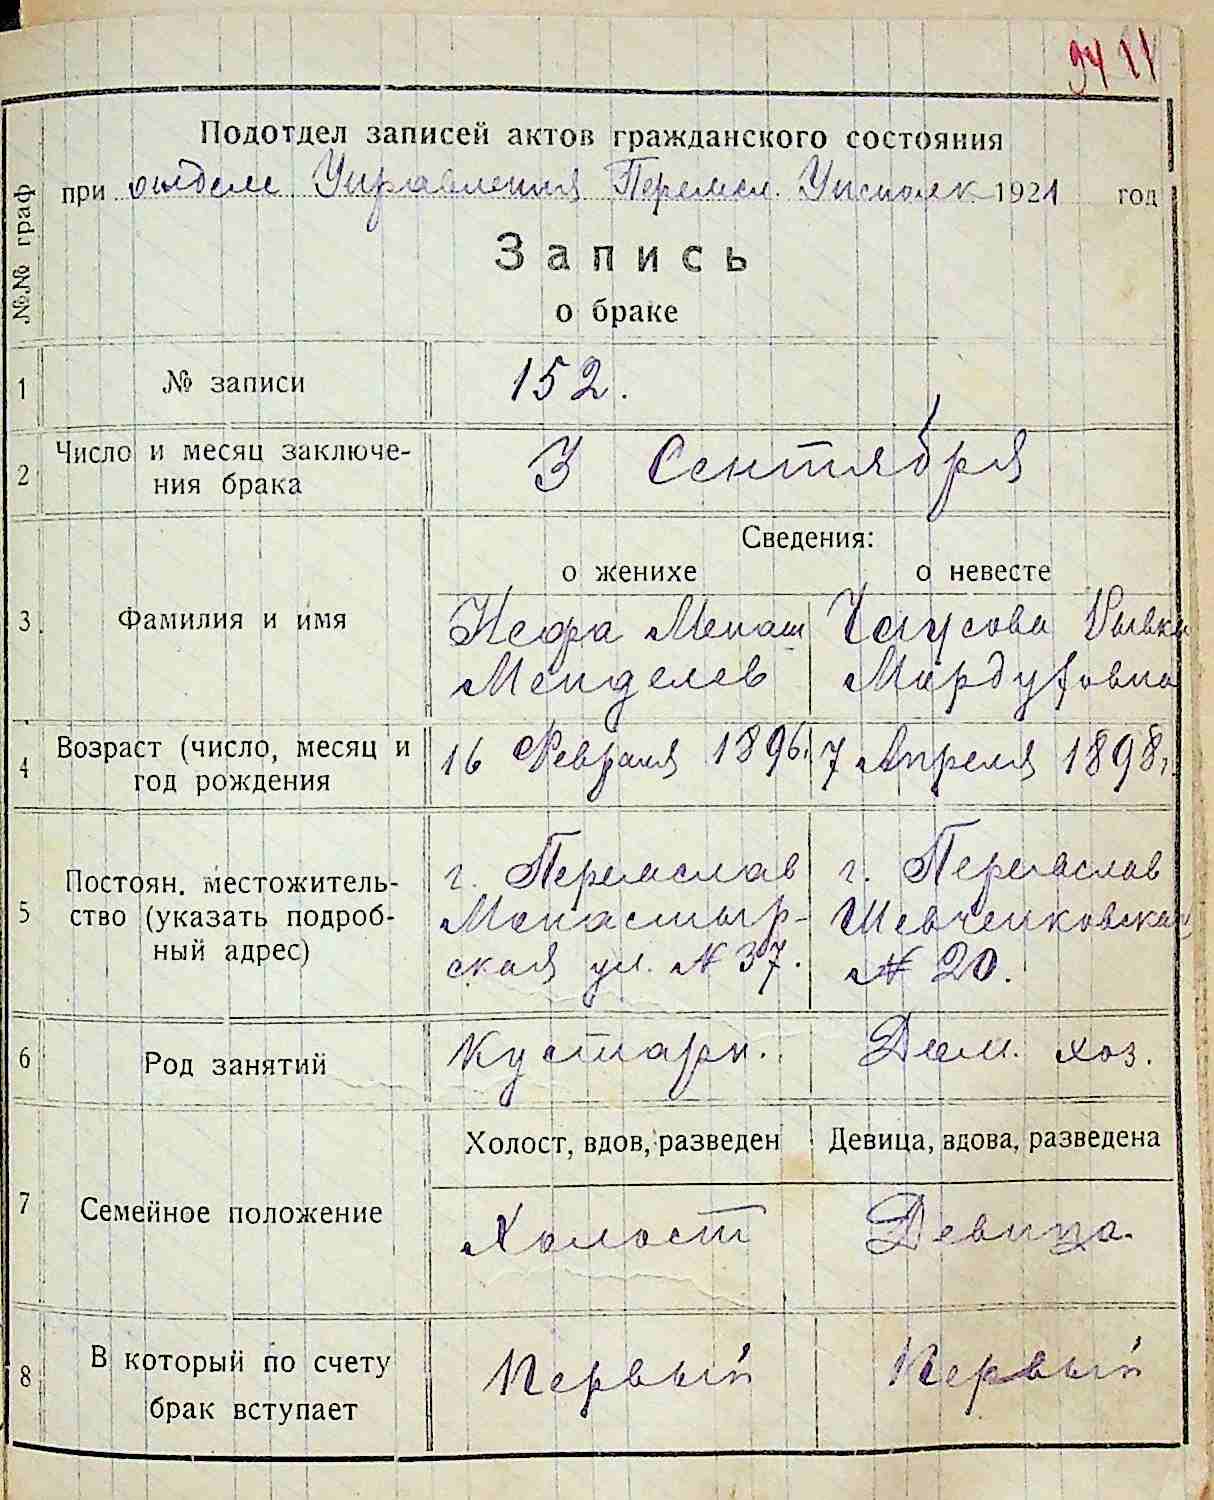 94 11
Подотдел записей актов гражданского состояния
при отделе Управления Переясл. Уисполк 1921 год
№№ граф
Запись
о браке
1 № записи 152.
2 Число и месяц заключе-
ния брака 3 Сентября
Сведения:
о женихе о невесте
3 Фамилия и имя
Менаш Чаусова Рывка
Менделев
4 Возраст (число, месяц и
год рождения 16 Февраля 1896г. 7 Апреля 1898г.
5 Постоян. местожитель-
ство (указать подроб-
ный адрес)
г. Переяслав г. Переяслав
Монастыр- Шевченковская
ская ул. № 37. № 20.
6 Род занятий Кустарн. Дом. хоз.
Холост, вдов, разведен Девица, вдова, разведена
7 Семейное положение Холост Девица.
8 В который по счету
брак вступает Первый Первый